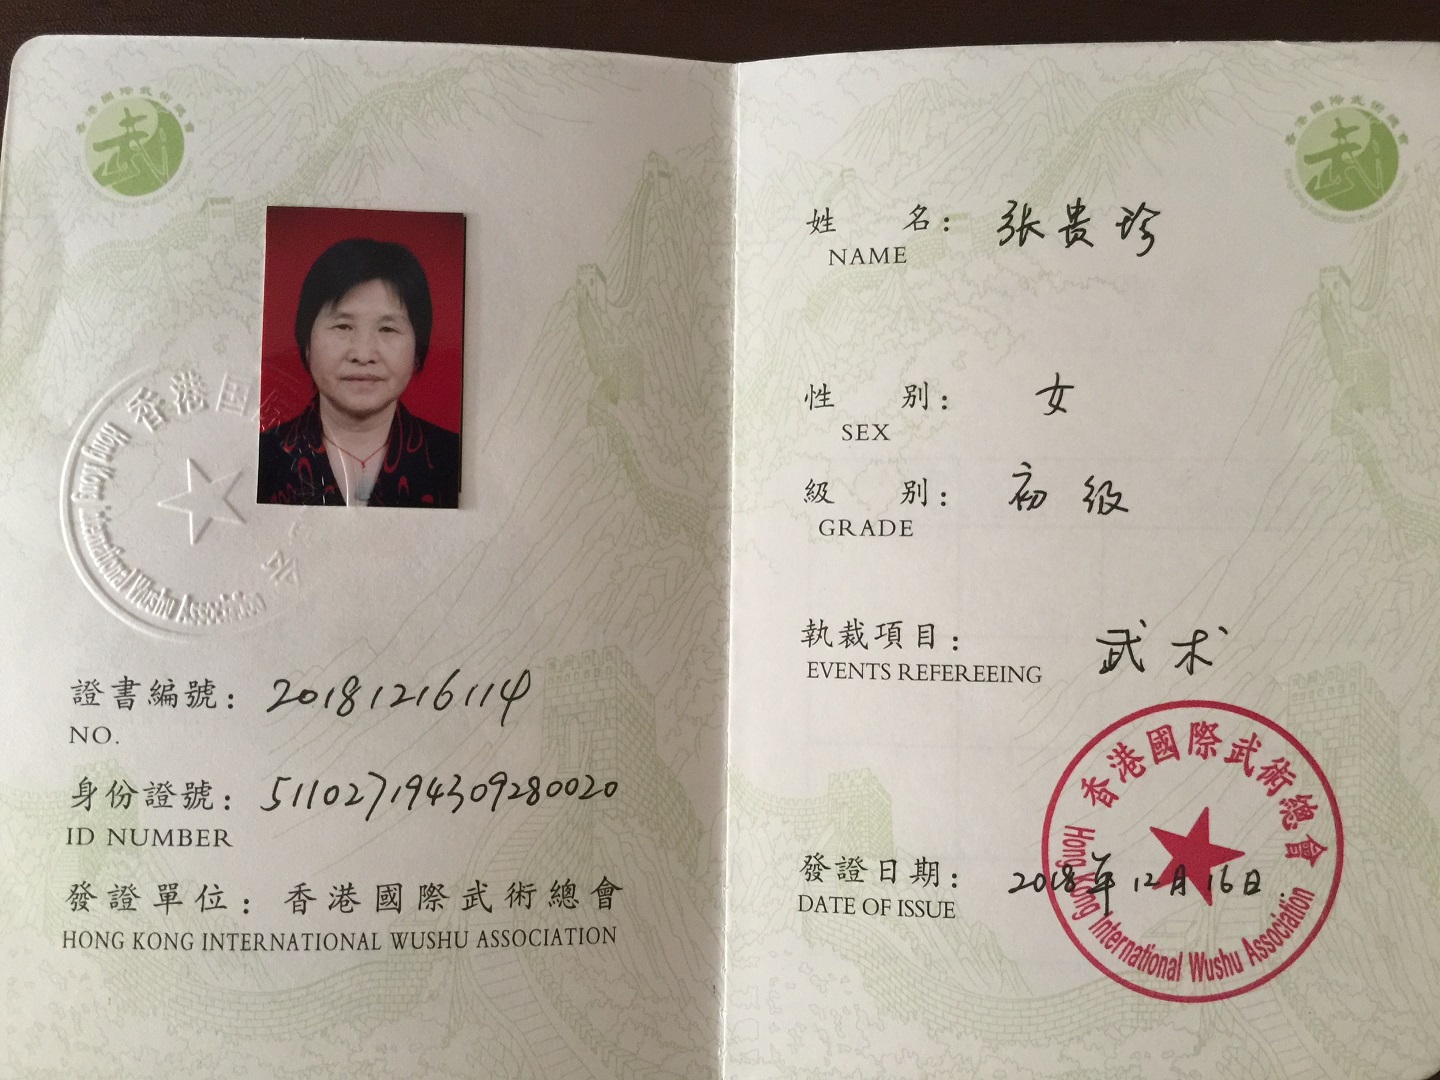 香港國際武術總會
香港国际
Hong Kong International Wushu Association
證書編號：20181216114
NO.
身份證號：511027194309280020
ID NUMBER
發證單位：香港國際武術總會
HONG KONG INTERNATIONAL WUSHU ASSOCIATION
香港國際武術總會
姓 名：张贵珍
NAME
性 别：女
SEX
級 别：初级
GRADE
執裁項目：武术
EVENTS REFEREEING
香港國際武術總會
發證日期：2018年12月16日
DATE OF ISSUE
Hong Kong International Wushu Association